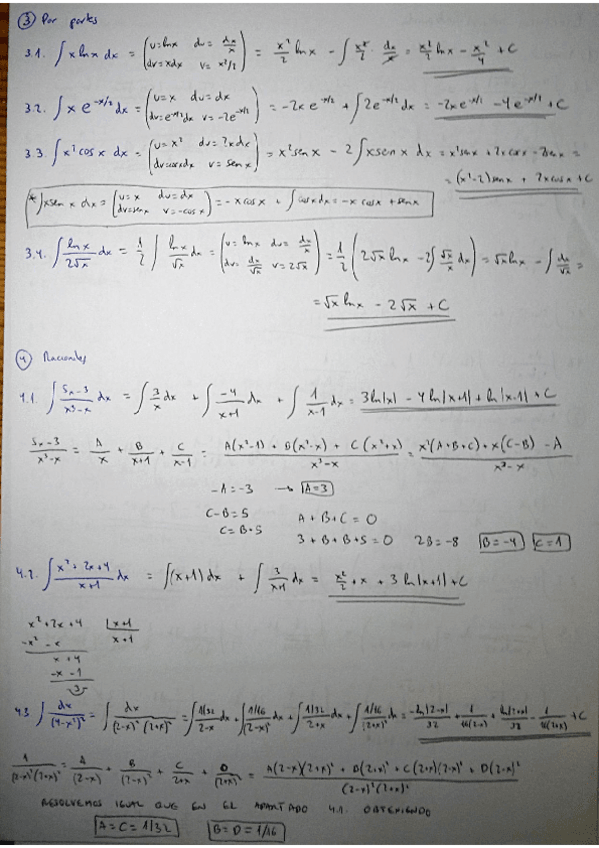 ③ Por partes
3.1. ∫ x ln x dx = (u = ln x du = dx/x; dv = x dx v = x²/2) = x²/2 ln x - ∫ x²/2 · dx/x = x²/2 ln x - x²/4 + C
3.2. ∫ x e^(-x/2) dx = (u = x du = dx; dv = e^(-x/2) dx v = -2e^(-x/2)) = -2x e^(-x/2) + ∫ 2e^(-x/2) dx = -2x e^(-x/2) - 4 e^(-x/2) + C
3.3. ∫ x² cos x dx = (u = x² du = 2x dx; dv = cos x dx v = sen x) = x² sen x - 2 ∫ x sen x dx = x² sen x + 2x cos x - 2 sen x =
= (x²-2) sen x + 2x cos x + C
* ∫ x sen x dx = (u = x du = dx; dv = sen x v = -cos x) = -x cos x + ∫ cos x dx = -x cos x + sen x
3.4. ∫ ln x/(2√x) dx = 1/2 ∫ ln x/√x dx = (u = ln x du = dx/x; dv = dx/√x v = 2√x) = 1/2 (2√x ln x - 2∫ √x/x dx) = √x ln x - ∫ dx/√x =
= √x ln x - 2√x + C
④ Racionales
4.1. ∫ (5x-3)/(x³-x) dx = ∫ 3/x dx + ∫ -4/(x+1) dx + ∫ 1/(x-1) dx = 3 ln|x| - 4 ln|x+1| + ln|x-1| + C
(5x-3)/(x³-x) = A/x + B/(x+1) + C/(x-1) = (A(x²-1) + B(x²-x) + C(x²+x))/(x³-x) = (x²(A+B+C) + x(C-B) - A)/(x³-x)
-A = -3 → A = 3
C-B = 5 A + B + C = 0
C = B+5 3 + B + B + 5 = 0 2B = -8 B = -4 C = 1
4.2. ∫ (x² + 2x + 4)/(x+1) dx = ∫ (x+1) dx + ∫ 3/(x+1) dx = x²/2 + x + 3 ln|x+1| + C
x² + 2x + 4 | x+1
-x² - x x+1
x + 4
-x - 1
3
4.3 ∫ dx/(4-x²)² = ∫ dx/((2-x)² (2+x)²) = ∫ (1/32)/(2-x) dx + ∫ (1/16)/(2-x)² dx + ∫ (1/32)/(2+x) dx + ∫ (1/16)/(2+x)² dx = -ln|2-x|/32 + 1/(16(2-x)) + ln|2+x|/32 - 1/(16(2+x)) + C
1/((2-x)²(2+x)²) = A/(2-x) + B/(2-x)² + C/(2+x) + D/(2+x)² = (A(2-x)(2+x)² + B(2+x)² + C(2+x)(2-x)² + D(2-x)²)/((2-x)²(2+x)²)
RESOLVEMOS IGUAL QUE EN EL APARTADO 4.1. OBTENIENDO
A = C = 1/32 B = D = 1/16